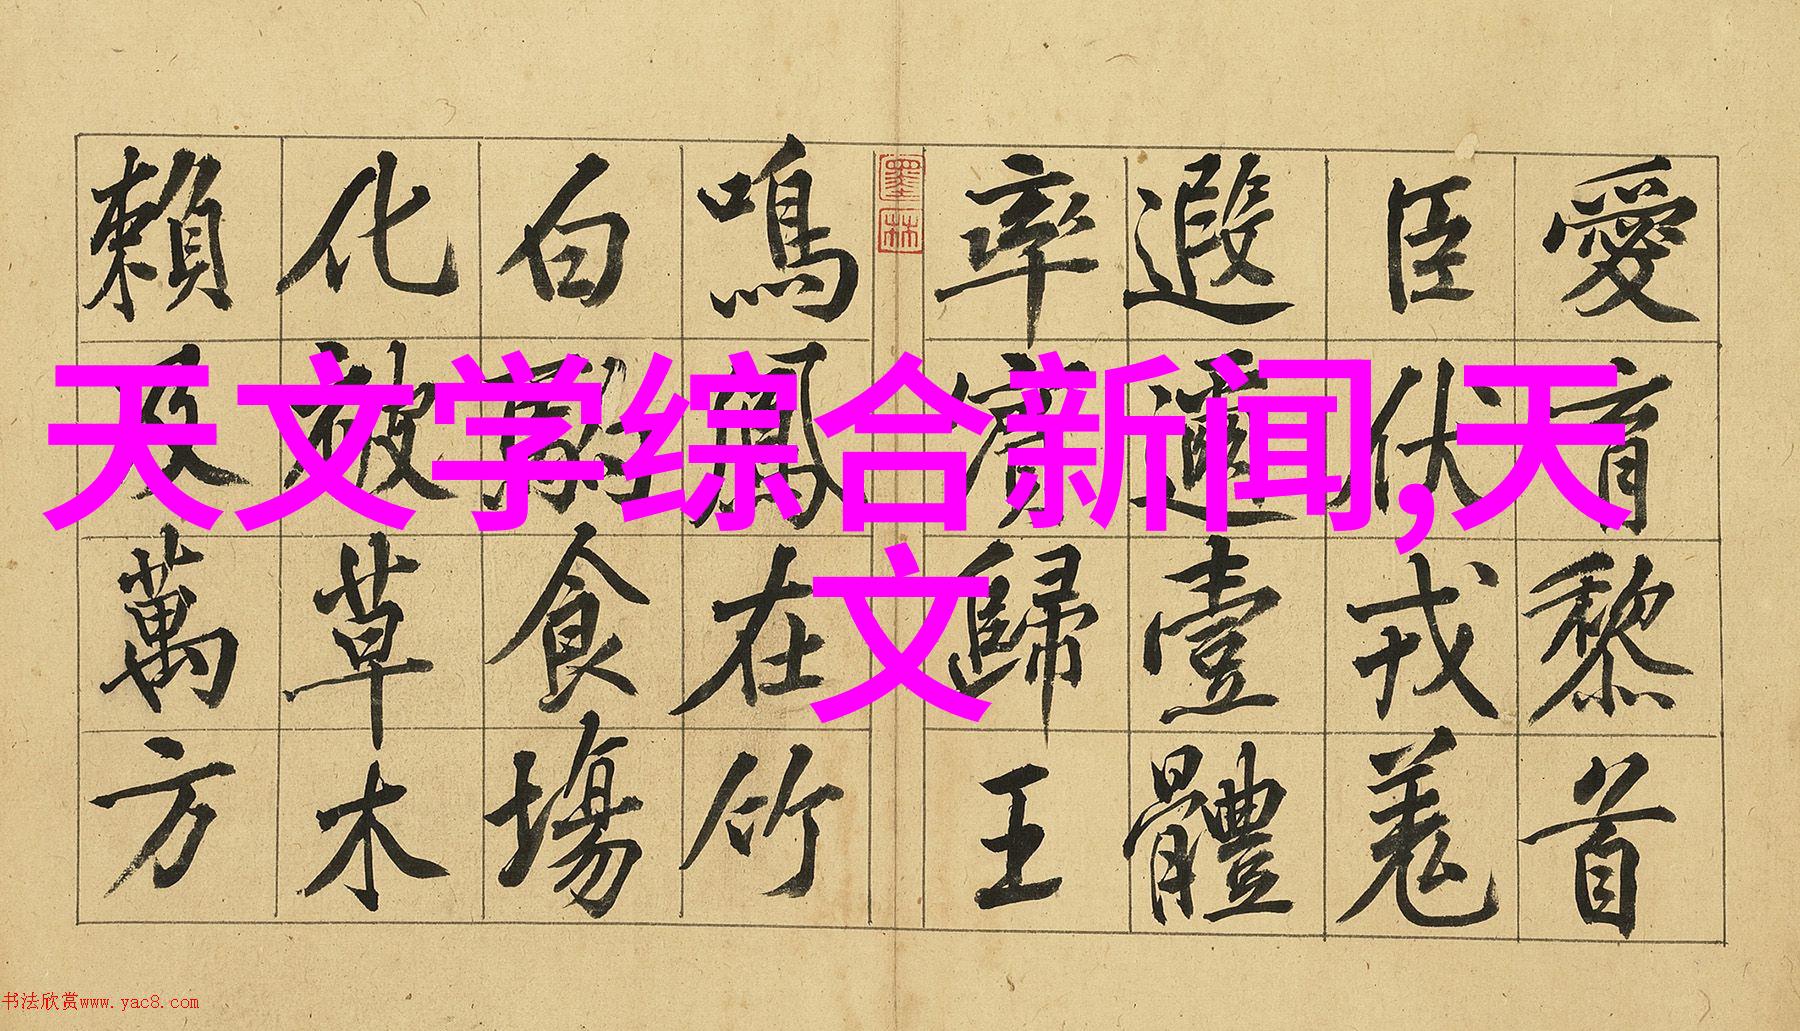 愛育黎首
臣伏戎羌
遐邇壹體
率賓歸王
墨林
鳴鳳在竹
白駒食場
化被草木
賴及萬方
天文学综合新闻,天
文
书法欣赏www.yac8.com